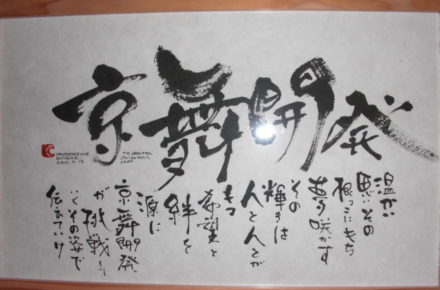 京舞開発
温かい
思いその
根っこにもち
夢咲かす
その
輝きは
人と人とが
もつ
希望と
絆を
源に
京舞開発
が挑戦し
いくその姿で
伝えていけ